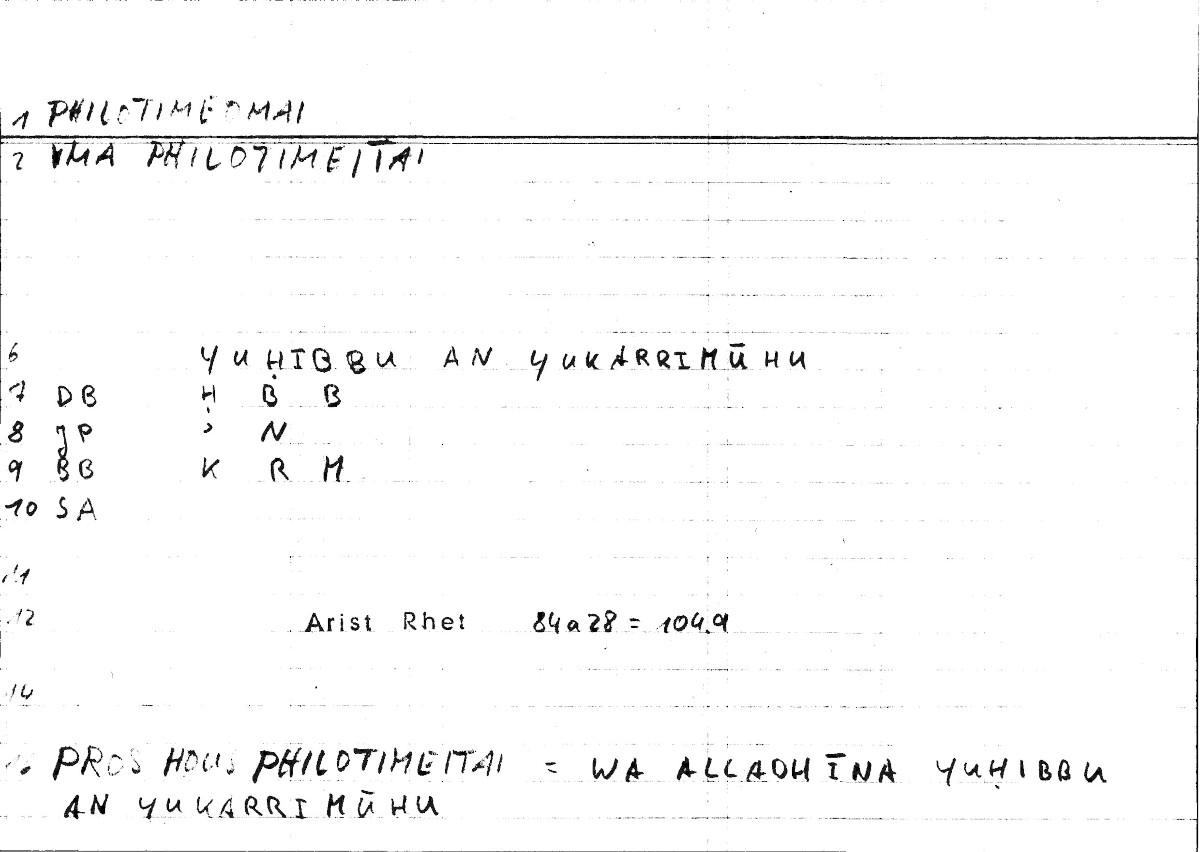 1 PHILOTIMEOMAI
2 VMA PHILOTIMEITAI
6 YUḤIBBU AN YUKARRIMŪHU
7 DB Ḥ B B
8 JP ʾ N
9 BB K R M
10 SA
11
12 Arist Rhet 84a28 = 104.9
14
PROS HOUS PHILOTIMEITAI = WA ALLADHĪNA YUḤIBBU
AN YUKARRIMŪHU